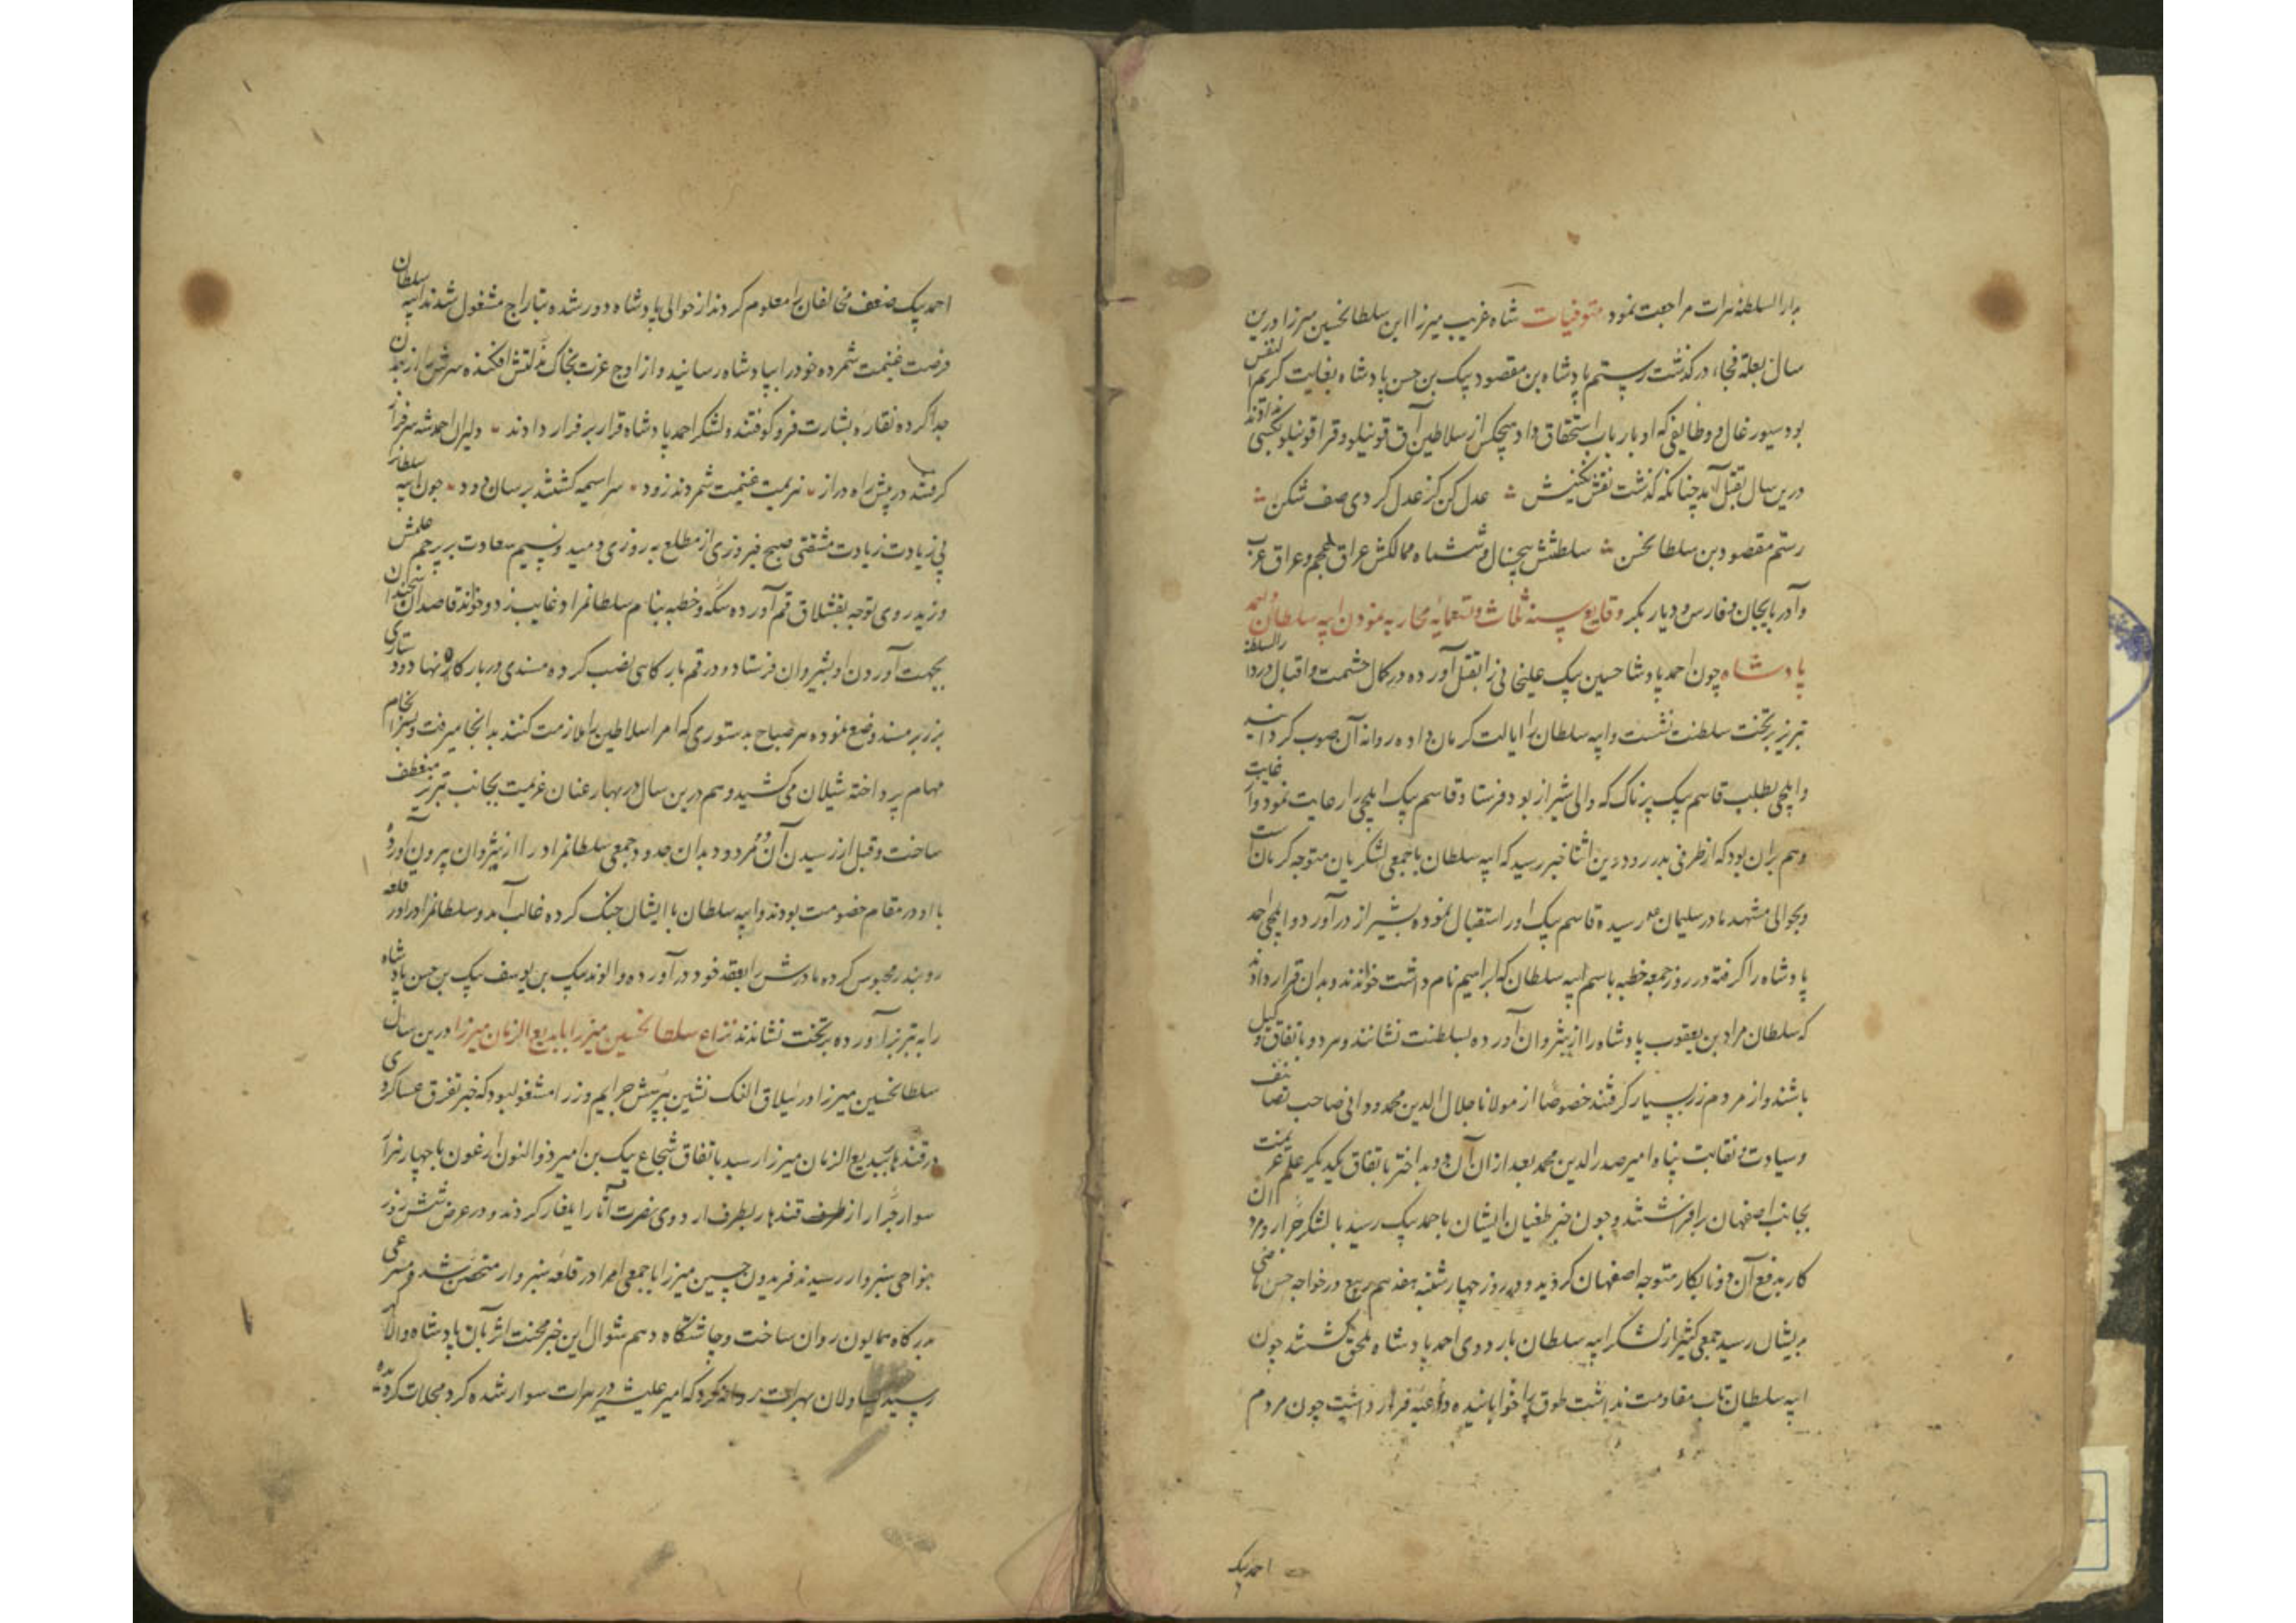 بدار السلطنهٔ هرات مراجعت نمود متوفیات شاه غریب میرزا ابن سلطانحسین میرزا درین
سال بعلة فجاء درکذشت رستم پادشاه بن مقصود بیک بن حسن پادشاه بغایت کریم النفس
بود سیورغال و وظایفی که او بارباب استحقاق داد هیچکس از سلاطین آق قوینلو و قراقوینلو بکسی نداده اند
درین سال بقتل آمد چنانکه کذشت نقش نکینش عدل کن کز عدل کردی صف شکن
رستم مقصود بن سلطانحسن سلطنتش پنجسال و شش ماه ممالکش عراق عجم و عراق عرب
و آذربایجان و فارس و دیار بکر وقایع سنه ثلاث و تسعمایه محاربه نمودن ایبه سلطان و احمد
پادشاه چون احمد پادشاه حسین بیک علیخانی را بقتل آورده در کمال حشمت و اقبال در دار السلطنهٔ
تبریز بر تخت سلطنت نشست و ایبه سلطان را ایالت کرمان داده روانه آن صوب کردانید
و ایلچی بطلب قاسم بیک پرناک که والی شیراز بود فرستاد قاسم بیک ایلچی را رعایت نمود
و هم بران بود که از طرفی بدر رود درین اثنا خبر رسید که ایبه سلطان با جمعی لشکریان متوجه کرمان است
و بحوالی مشهد مادر سلیمان رسیده قاسم بیک او را استقبال نموده بشیراز درآورد و ایلچی احمد
پادشاه را کرفته در روز جمعه خطبه باسم ایبه سلطان که ابراهیم نام داشت خواندند و بدان قرار دادند
که سلطان مراد بن یعقوب پادشاه را از شروان آورده بسلطنت نشانند و هر دو باتفاق وکیل
باشند و از مردم زر بسیار کرفتند خصوصا از مولانا جلال الدین محمد دوانی صاحب تصانیف
و سیادت و نقابت پناه امیر صدرالدین محمد بعد از آن آن دو بد اختر باتفاق یکدیکر علم عزیمت
بجانب اصفهان برافراشتند و چون خبر طغیان ایشان باحمد بیک رسید با لشکر جرار
کار بدفع آن دو نابکار متوجه اصفهان کردید و در روز چهارشنبه هفدهم ربیع در خواجه حسن ماضی
بریشان رسید جمعی کثیر از لشکر ایبه سلطان باردوی احمد پادشاه ملحق کشتند چون
ایبه سلطان تاب مقاومت نداشت طوق را خوابانیده داعیه فرار داشت چون مردم
احمد بیک
احمد بیک ضعف مخالفان را معلوم کردند از حوالی پادشاه دور شده بتاراج مشغول شدند ایبه سلطان
فرصت غنیمت شمرده خود را بپادشاه رسانید و از اوج عزت بخاک مذلتش افکنده سرش را از بدن
جدا کرده نقاره بشارت فرو کوفتند و لشکر احمد پادشاه قرار بر فرار دادند دلیران احمد شه سرفراز
کرفتند در پیش راه دراز هزیمت غنیمت شمردند زود سراسیمه کشتند برسان دود چون ایبه سلطان
بی زیادت زیادت مشقتی صبح فیروزی از مطلع بهروزی دمید و نسیم سعادت بر پرچم علمش
وزید روی توجه بقشلاق قم آورده سکه و خطبه بنام سلطانمراد غایب زد و خواند قاصدان
بجهت آوردن او بشروان فرستاد و در قم بارکاهی نصب کرده مسندی در بارکاه نهاد و دستاری
بزرگ بر مسند وضع نموده هر صباح بدستوری که امرا سلاطین را ملازمت کنند بدانجا میرفت و بسرانجام
مهام پرداخته شیلان می کشید و هم درین سال در بهار عنان عزیمت بجانب تبریز منعطف
ساخت و قبل از رسیدن آن دو مردود بدان حدود جمعی سلطانمراد را از شروان بیرون آورده
با او در مقام خصومت بودند و ایبه سلطان با ایشان جنک کرده غالب آمد و سلطانمراد را در قلعه
روبندز محبوس کرده مادرش را بعقد خود درآورده و الوند بیک بن یوسف بیک بن حسن پادشاه
را به تبریز آورده بر تخت نشاندند نزاع سلطانحسین میرزا با بدیع الزمان میرزا درین سال
سلطانحسین میرزا در ییلاق النک نشین بپرسش جرایم وزرا مشغول بود که خبر تفرق عساکر
در قندهار ببدیع الزمان میرزا رسید باتفاق شجاع بیک بن امیر ذوالنون ارغون با چهار هزار
سوار جرار از طرف قندهار بطرف اردوی نصرت آثار ایلغار کردند و در عرض شش روز
بنواحی سبزوار رسیدند فریدون حسین میرزا با جمعی امرا در قلعه سبزوار متحصن شد و مسرعی
بدرکاه همایون روان ساخت و چاشتکاه دهم شوال این خبر محنت اثر بآن پادشاه والا
رسید یساولان بهرات روانه کرد که امیر علیشیر در هرات سوار شده کرد محلات کردیده